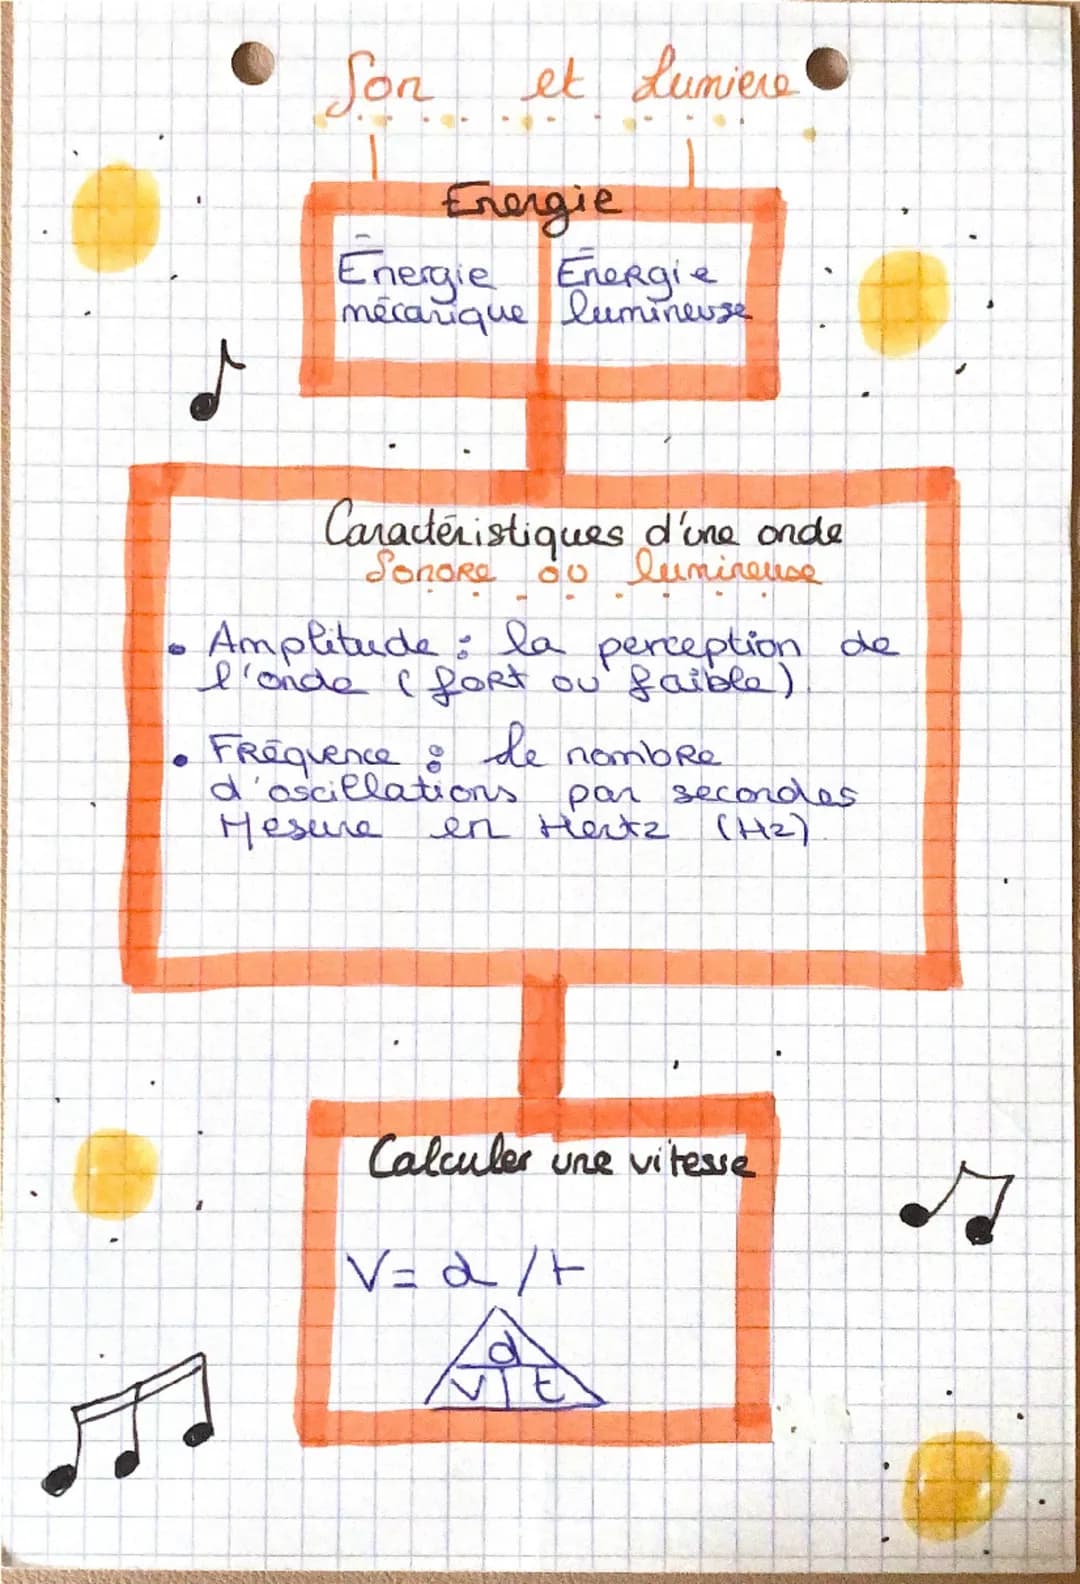 Son et Lumiere
Energie
Énergie
mécanique
Énergie
lumineuse
Caractéristiques d'une onde
Sonore ou lumineuse
• Amplitude : la perception de
l'onde (fort ou faible).
• Fréquence : Le nombre
d'oscillations par secondes
Mesure en Hertz (Hz).
Calculer une vitesse
V = d / t
d
v t